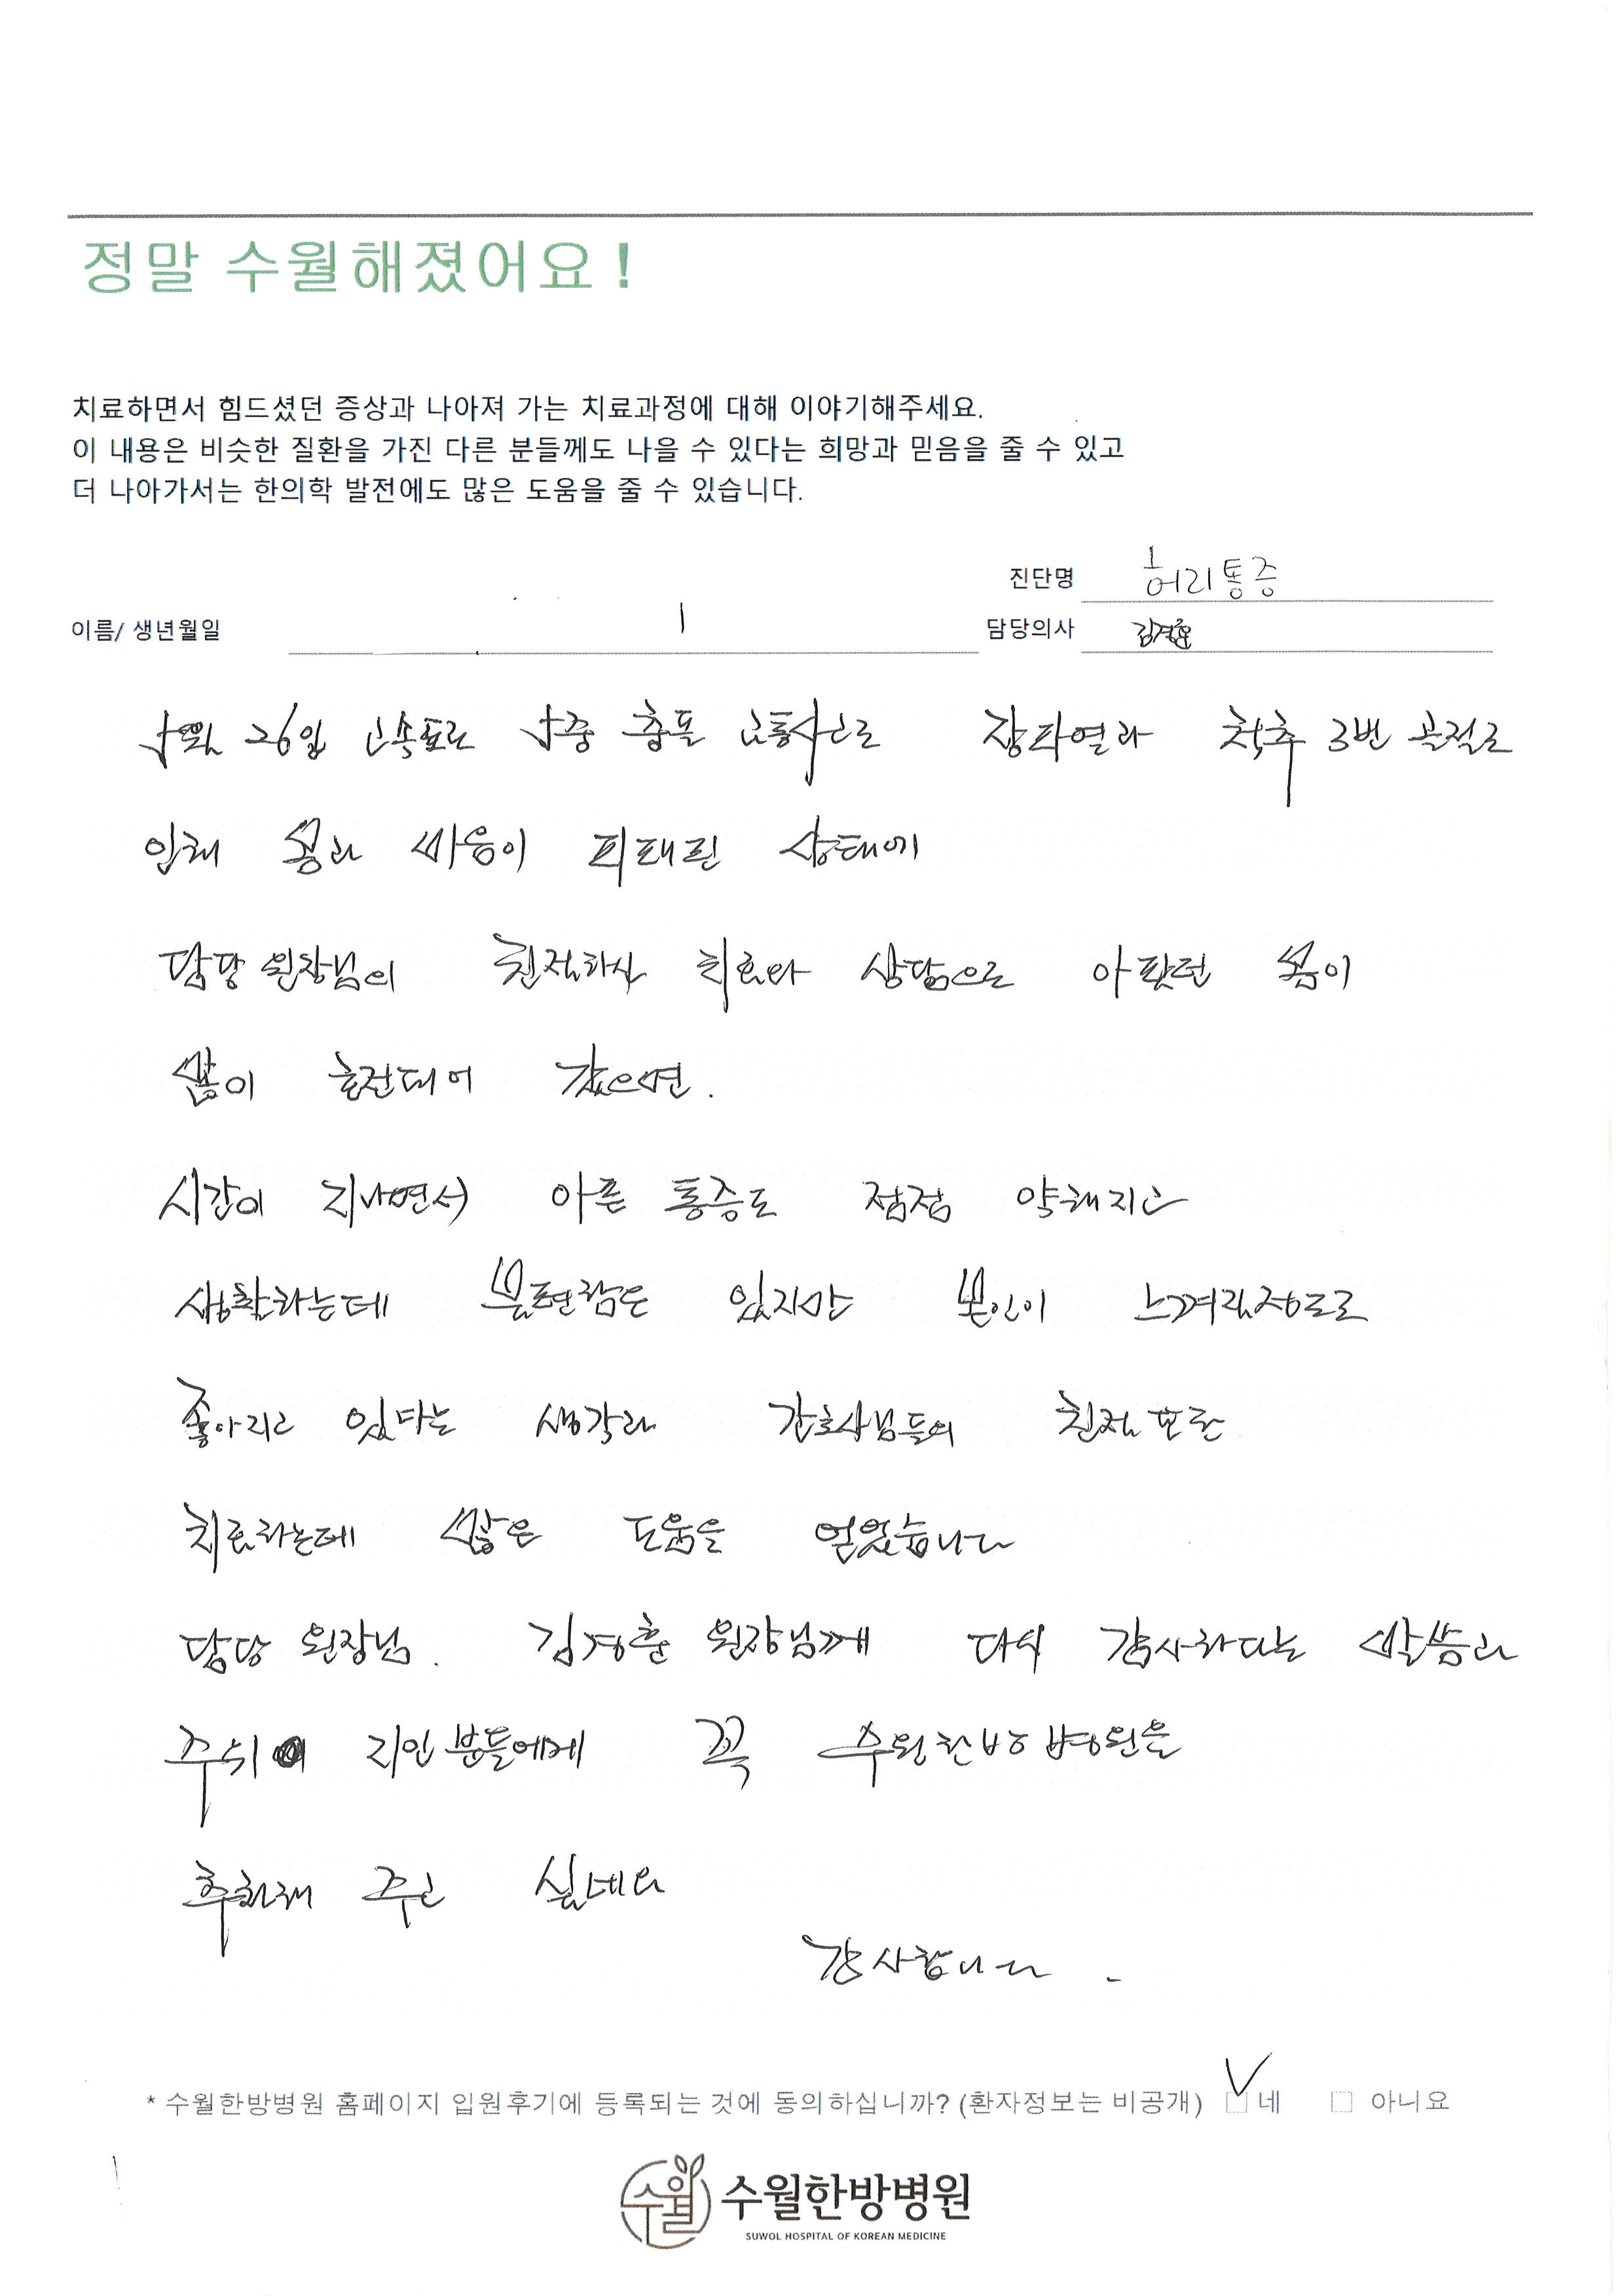 정말 수월해졌어요!
치료하면서 힘드셨던 증상과 나아져 가는 치료과정에 대해 이야기해주세요.
이 내용은 비슷한 질환을 가진 다른 분들께도 나을 수 있다는 희망과 믿음을 줄 수 있고
더 나아가서는 한의학 발전에도 많은 도움을 줄 수 있습니다.
진단명 허리통증
이름/ 생년월일 담당의사 김경훈
26일 고속도로 충돌 교통사고로 장파열과 척추 3번 골절로
인해 몸과 마음이 피태린 상태에
담당 원장님의 친절하신 치료와 상담으로 아팠던 몸이
많이 호전되어 갔으면.
시간이 지나면서 아픈 통증도 점점 약해지고
생활하는데 불편함은 있지만 본인이 느껴질정도로
좋아지고 있다는 생각과 간호사님들의 친절 또한
치료하는데 많은 도움을 얻었습니다
담당 원장님. 김경훈 원장님께 다시 감사하다는 말씀과
주위 지인분들에게 꼭 수월한방병원을
추천해 주고 싶네요
감사합니다.
* 수월한방병원 홈페이지 입원후기에 등록되는 것에 동의하십니까? (환자정보는 비공개) 네 아니요
수월 수월한방병원
SUWOL HOSPITAL OF KOREAN MEDICINE